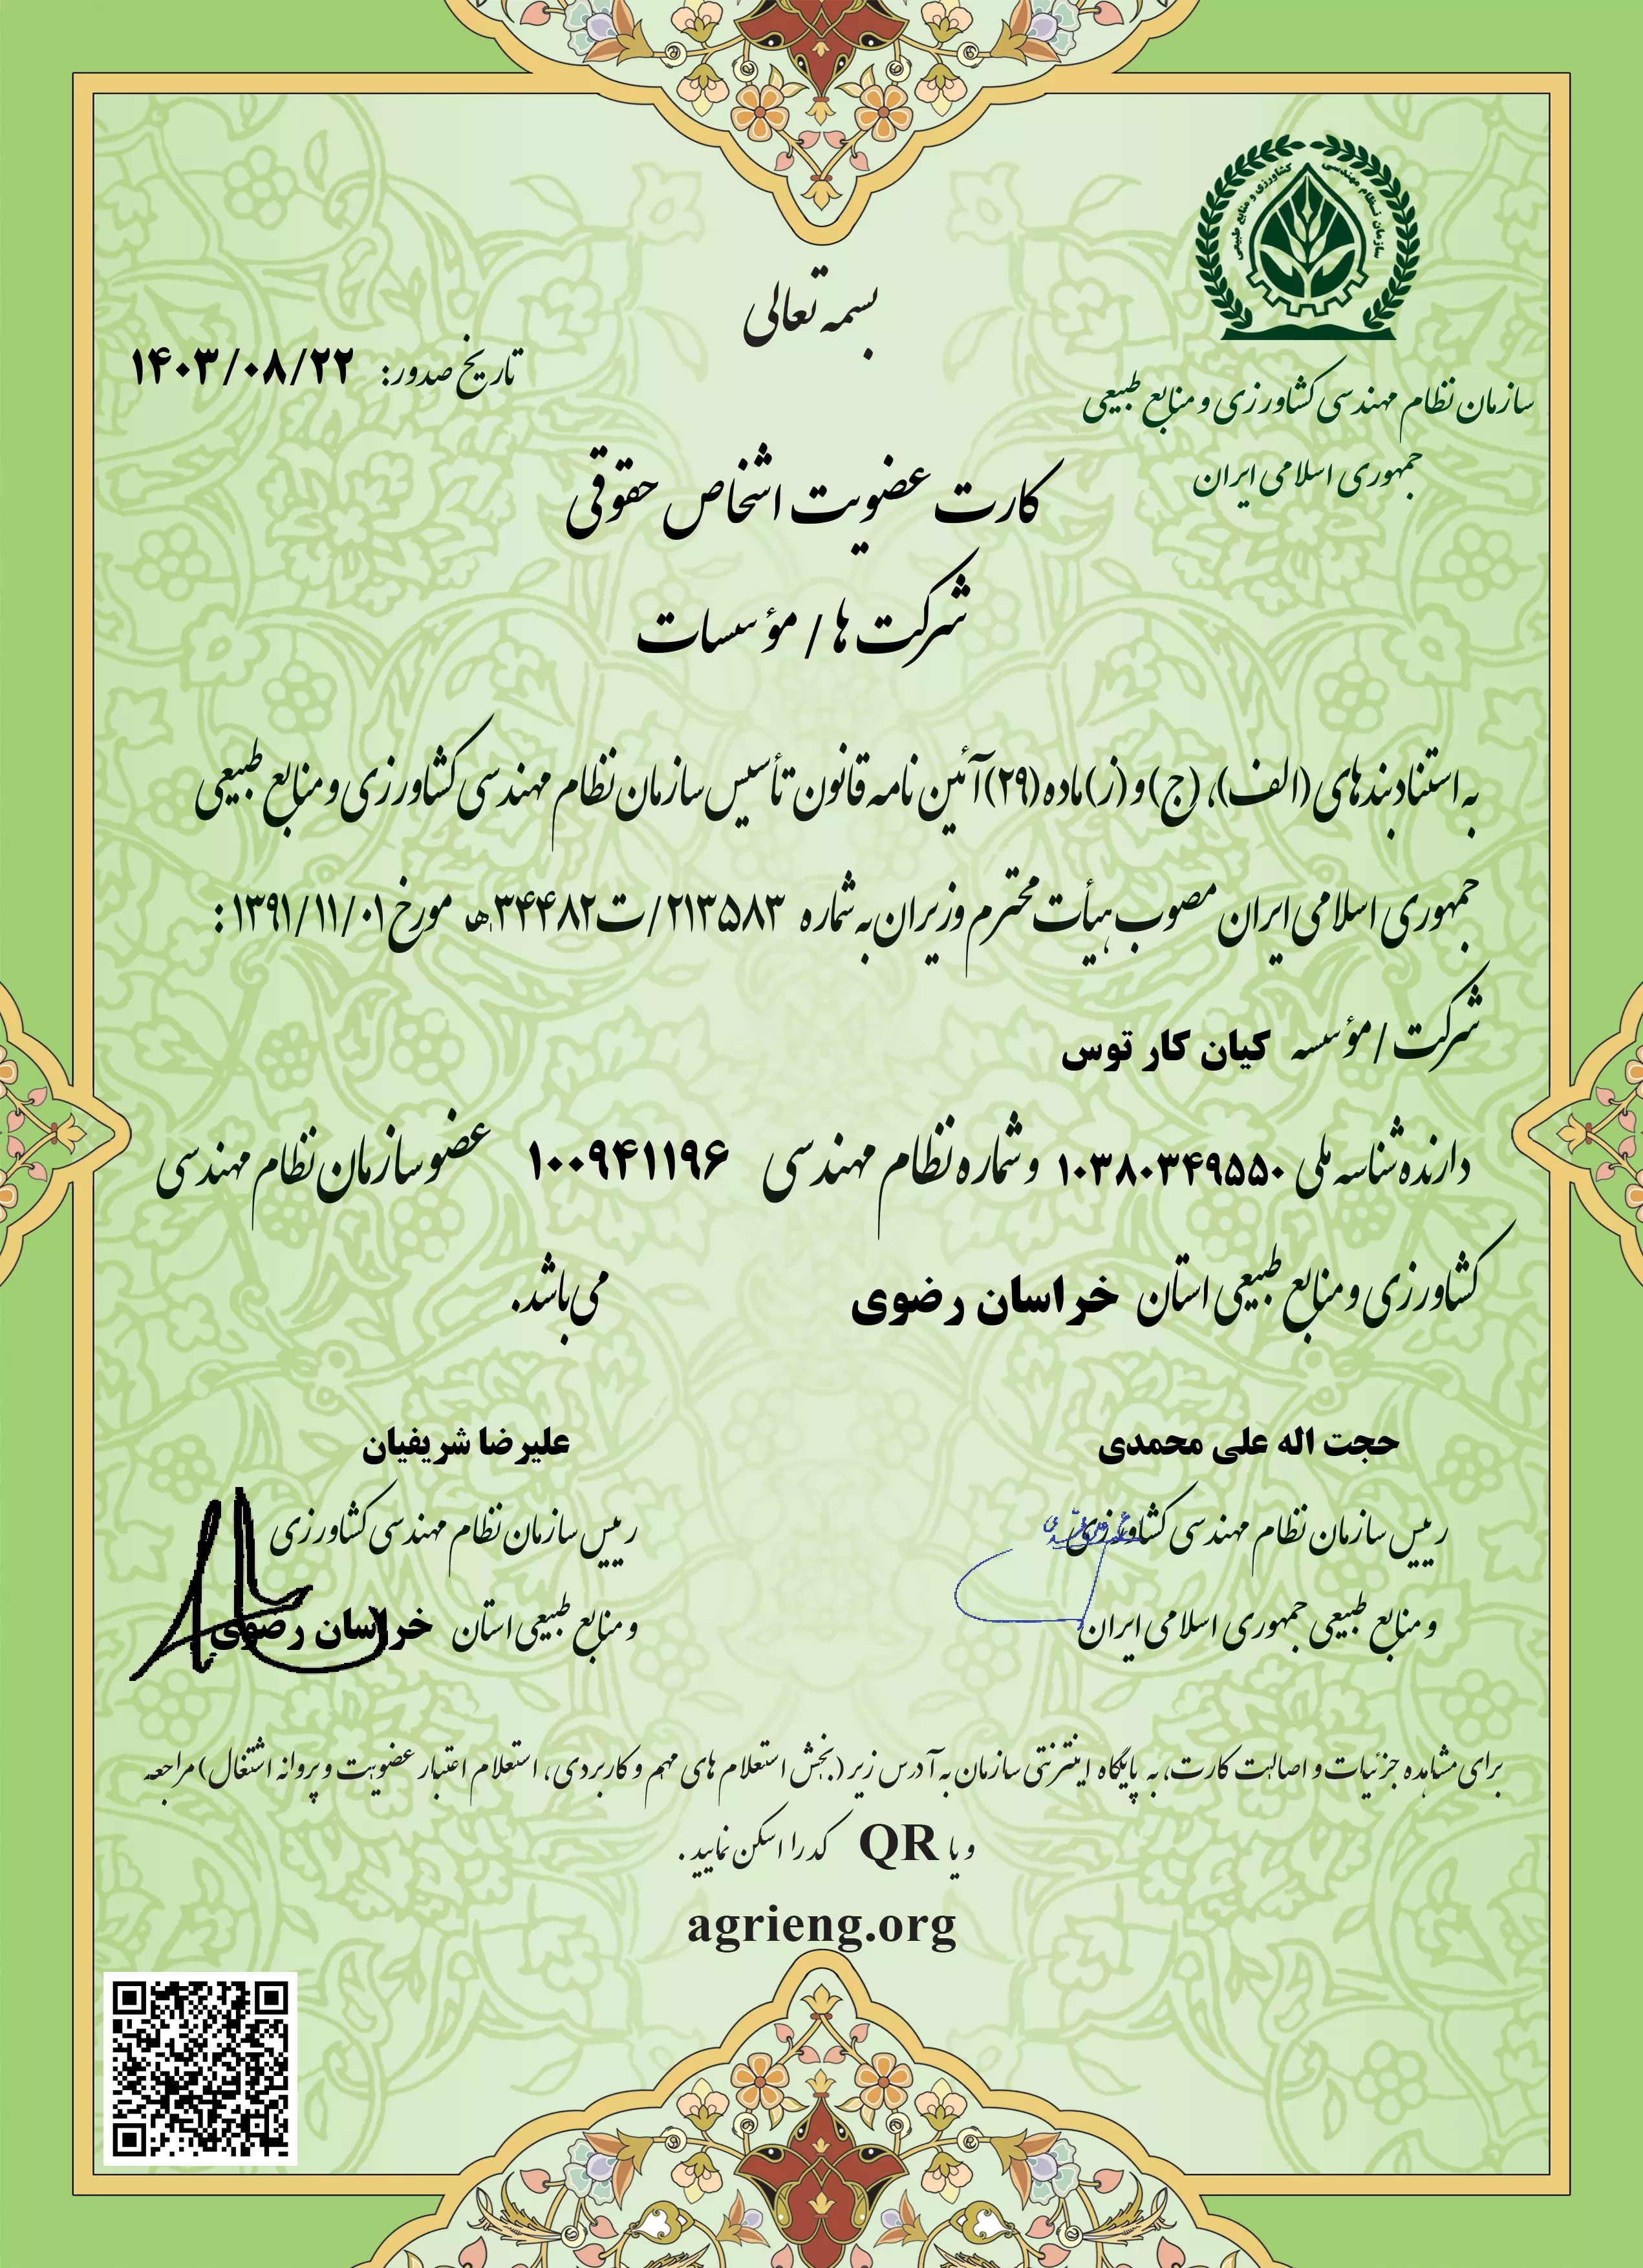 بسمه تعالی
سازمان نظام مهندسی کشاورزی و منابع طبیعی
سازمان نظام مهندسی کشاورزی و منابع طبیعی
جمهوری اسلامی ایران
تاریخ صدور: ۱۴۰۳/۰۸/۲۲
کارت عضویت اشخاص حقوقی
شرکت ها / مؤسسات
به استناد بندهای (الف)، (ج) و (ز) ماده (۲۹) آئین نامه قانون تأسیس سازمان نظام مهندسی کشاورزی و منابع طبیعی
جمهوری اسلامی ایران مصوب هیأت محترم وزیران به شماره ۲۱۳۵۸۳/ت۳۴۴۸۲هـ مورخ ۱۳۹۱/۱۱/۰۱ :
شرکت / مؤسسه کیان کار توس
دارنده شناسه ملی ۱۰۳۸۰۳۴۹۵۵۰ و شماره نظام مهندسی ۱۰۰۹۴۱۱۹۶ عضو سازمان نظام مهندسی
کشاورزی و منابع طبیعی استان خراسان رضوی می باشد.
حجت اله علی محمدی
رییس سازمان نظام مهندسی کشاورزی
و منابع طبیعی جمهوری اسلامی ایران
علیرضا شریفیان
رییس سازمان نظام مهندسی کشاورزی
و منابع طبیعی استان خراسان رضوی
برای مشاهده جزئیات و اصالت کارت، به پایگاه اینترنتی سازمان به آدرس زیر (بخش استعلام های مهم و کاربردی، استعلام اعتبار عضویت و پروانه اشتغال) مراجعه
و یا QR کد را اسکن نمایید .
agrieng.org